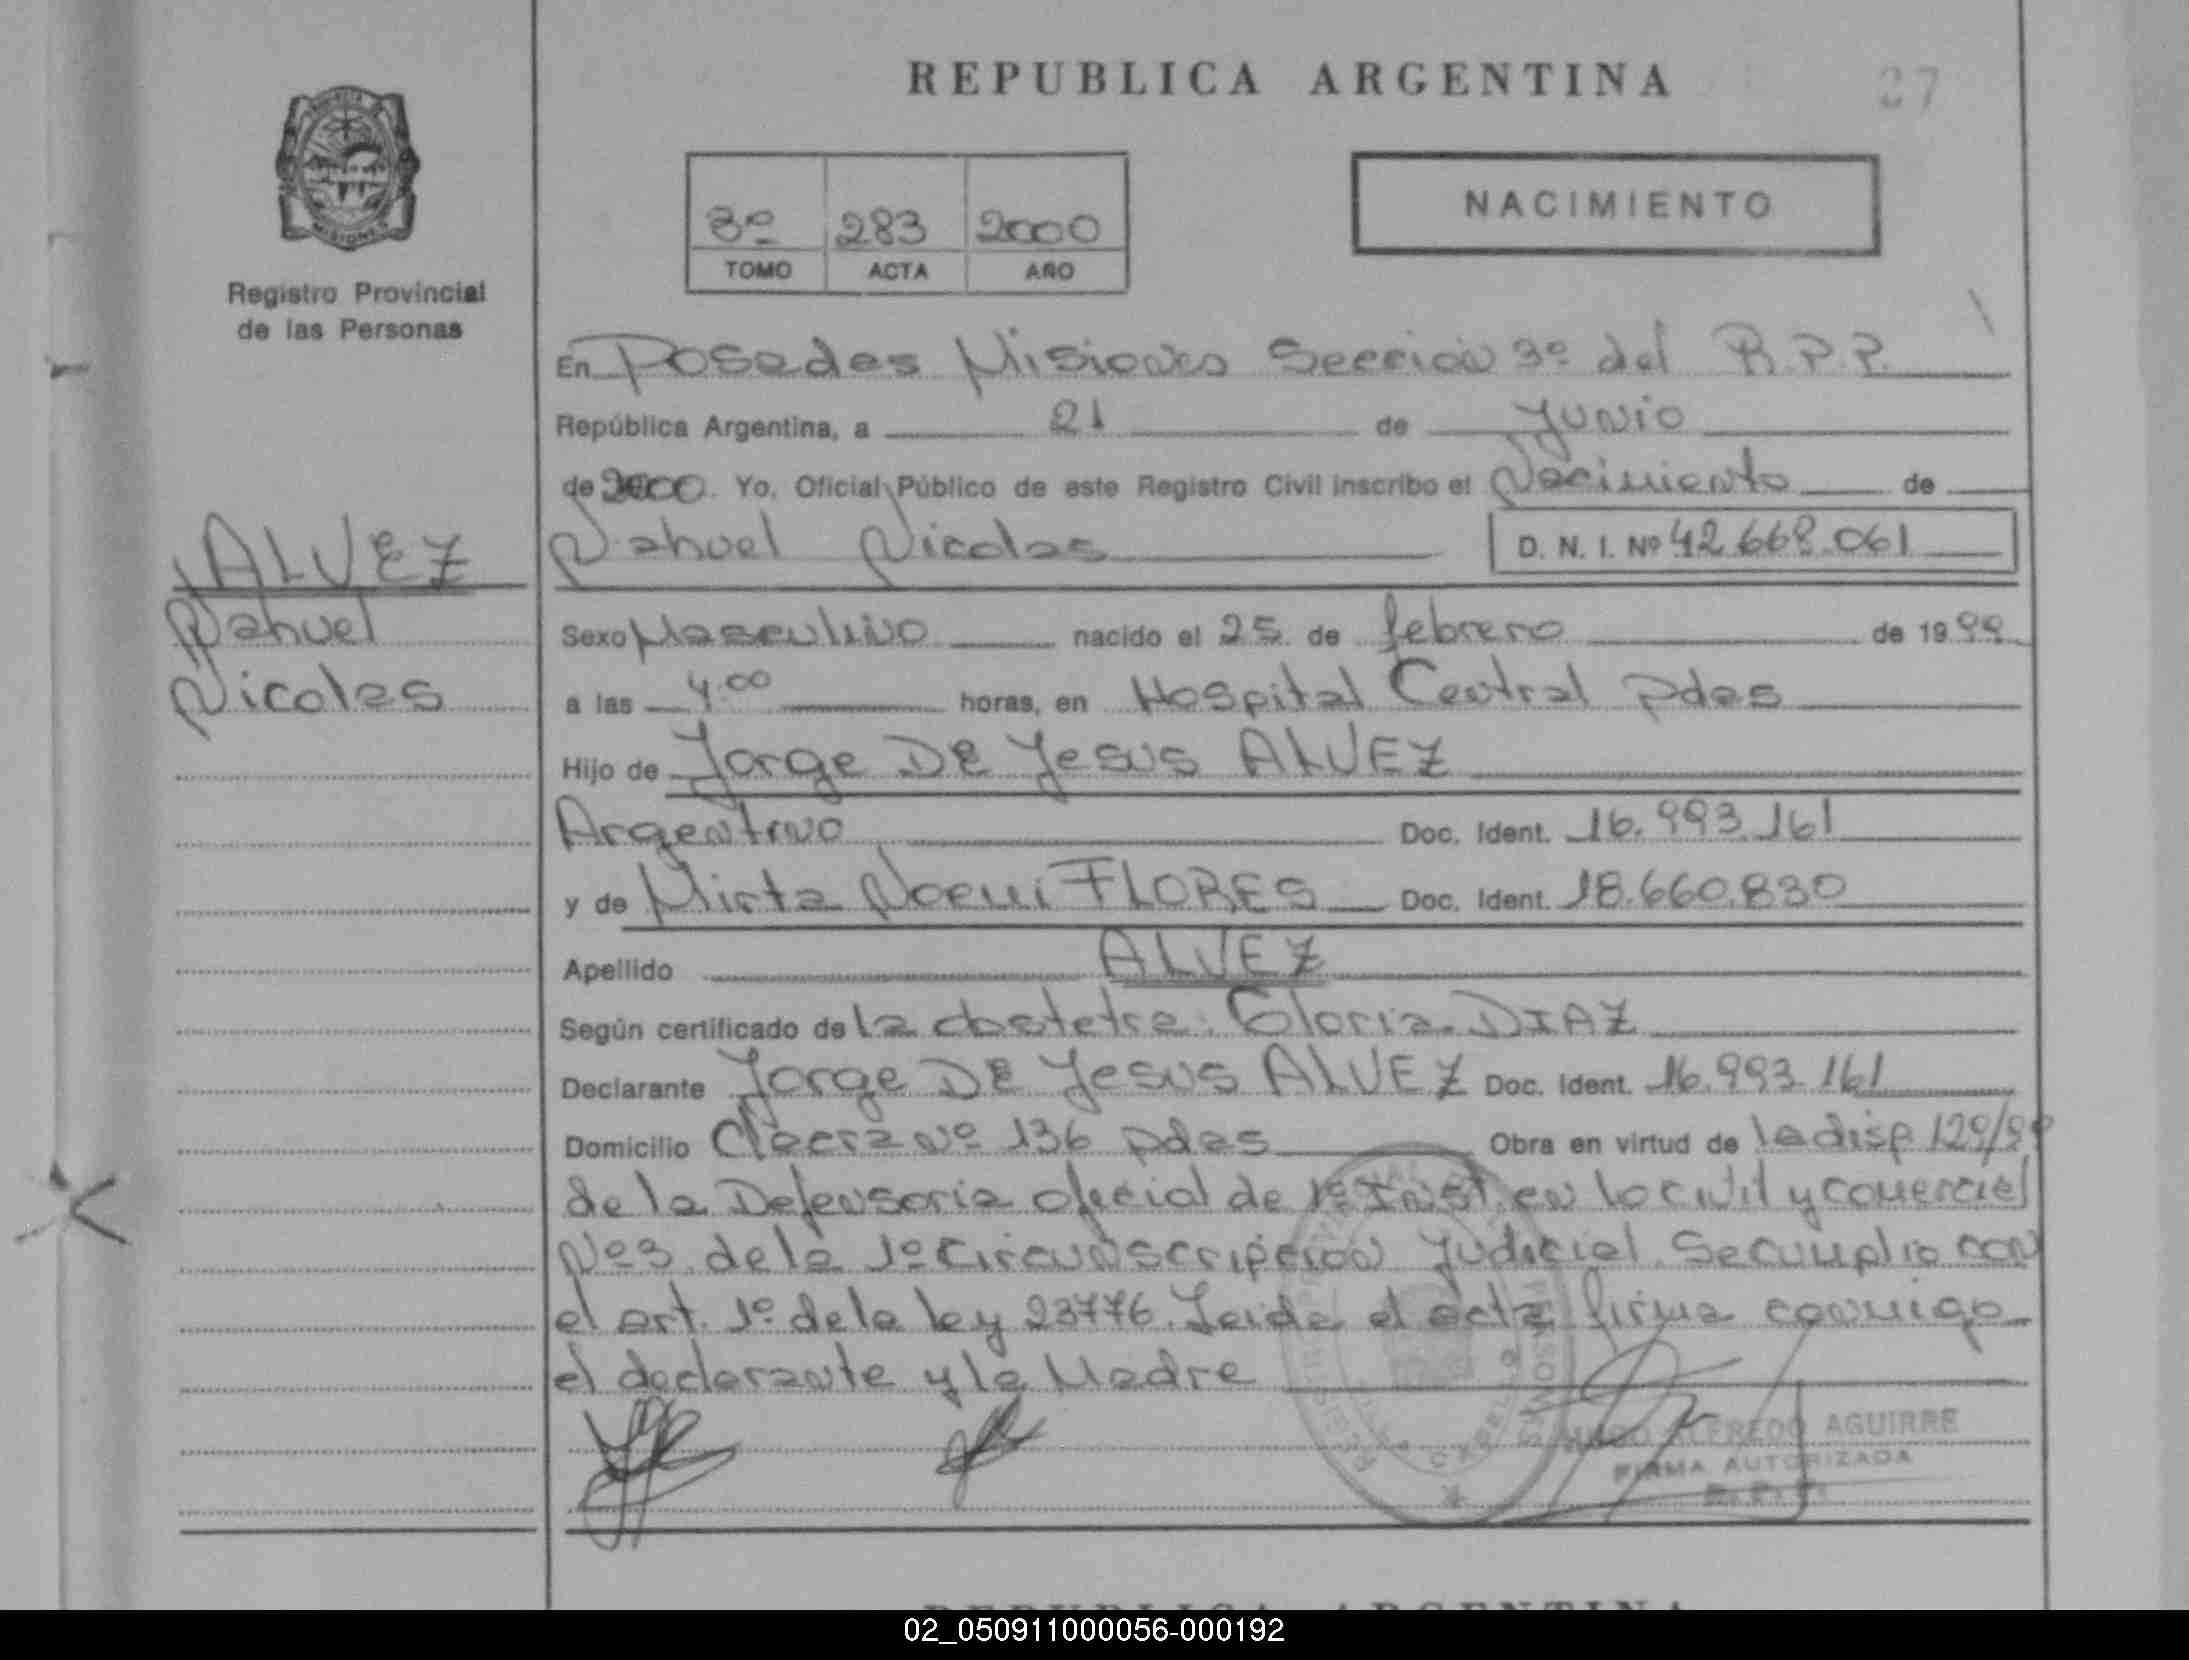 REPUBLICA ARGENTINA
27
3º 283 2000
TOMO ACTA AÑO
NACIMIENTO
MISIONES
Registro Provincial
de las Personas
En Posadas Misiones Sección 3º del R.P.P.
República Argentina, a 21 de Junio
de 2000. Yo, Oficial Público de este Registro Civil inscribo el Nacimiento de
Nahuel Nicolas D. N. I. Nº 42.668.061
ALVEZ
Nahuel
Nicolas
Sexo Masculino nacido el 25 de febrero de 1999
a las 4.00 horas, en Hospital Central pdas
Hijo de Jorge DE Jesus ALVEZ
Argentino Doc. Ident. 16.993.161
y de Mirta Noemi FLORES Doc. Ident. 18.660.830
Apellido ALVEZ
Según certificado de la obstetra: Gloria DIAZ
Declarante Jorge DE Jesus ALVEZ Doc. Ident. 16.993.161
Domicilio Chacra Nº 136 pdas Obra en virtud de la disp.
de la Defensoria oficial de 1º Inst. en lo civil y comercial
Nº 3 de la 1º Circunscripcion Judicial. Se cumplio con
el art. 1º de la ley 23776. Leida el acta firma conmigo
el declarante y la Madre
ALFREDO AGUIRRE
FIRMA AUTORIZADA
R.P.P.
REPUBLICA ARGENTINA
02_050911000056-000192